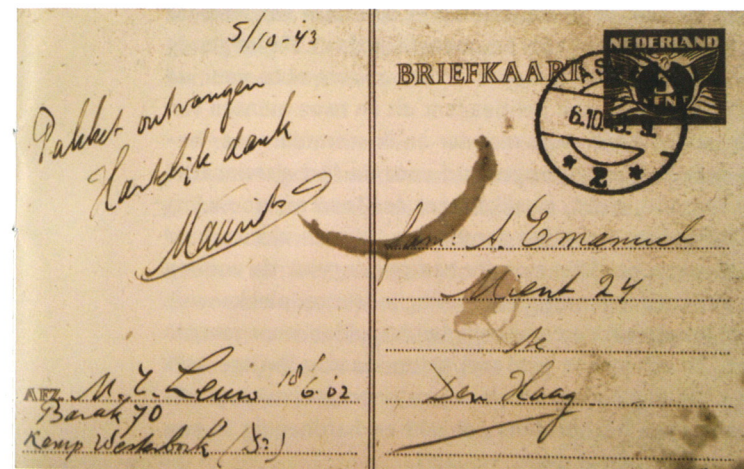 5/10-43
Pakket ontvangen
Hartelijke dank
Maurits
AFZ. M. E. Leuw 18/6.02
Barak 70
Kamp Westerbork (Dr)
BRIEFKAART
NEDERLAND
CENT
6.10.43
2
Fam: A. Emanuel
Mient 24
te
Den Haag